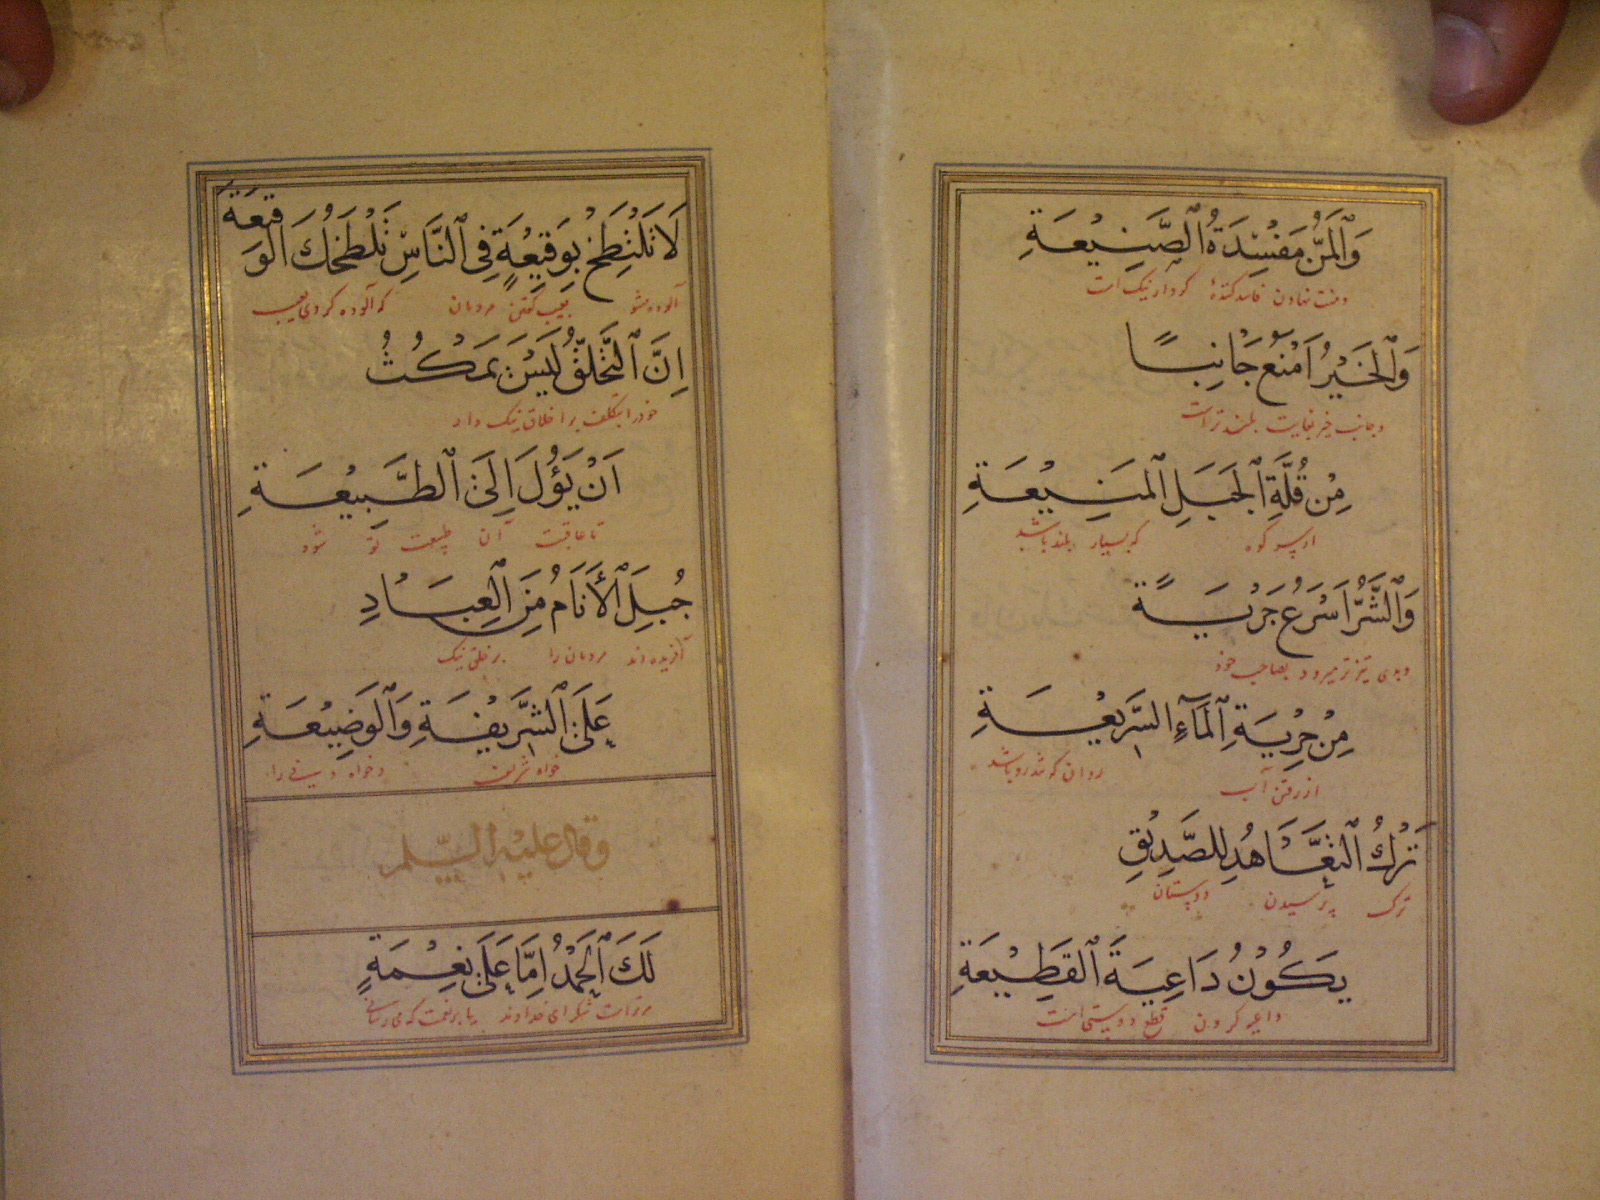 وَالْمَنُّ مَفْسِدَةُ الصَّنِيْعَةِ
ومنت نهادن فاسد کنندهٔ کردار نیک است
وَالْخَيْرُ اَمْنَعُ جَانِبًا
وجانب خیر بغایت بلند تر است
مِنْ قُلَّةِ الْجَبَلِ الْمَنِيْعَةِ
از سر کوه که بسیار بلند باشد
وَالشَّرُّ اَسْرَعُ جَرْيَةً
وبدی تیز تر میرود بصاحب خود
مِنْ جِرْيَةِ الْمَآءِ السَّرِيْعَةِ
از رفتن آب روان که تندرو باشد
تَرْكُ التَّعَاهُدِ لِلصَّدِيْقِ
ترک پرسیدن دوستان
يَكُوْنُ دَاعِيَةَ الْقَطِيْعَةِ
داعیه کردن قطع دوستی است
لَا تَلْتَطِخْ بِوَقِيْعَةٍ فِي النَّاسِ تَلْطَخُكَ الْوَقِيعَةُ
آلوده مشو بعیب گفتن مردمان که آلوده کردی بعیب
اِنَّ التَّخَلُّقَ لَيْسَ يَمْكُثُ
خود را بتکلف بر اخلاق نیک دار
اَنْ يَؤُلَ اِلَى الطَّبِيْعَةِ
تا عاقبت آن طبیعت تو شود
جُبِلَ الْأَنَامُ مِنَ الْعِبَادِ
آفریده اند مردمان را بر خلق نیک
عَلَى الشَّرِيْفَةِ وَالْوَضِيْعَةِ
خواه شریف وخواه دنی را
وقال عليه السلم
لَكَ الْحَمْدُ اِمَّا عَلَى نِعْمَةٍ
مر تراست شکر ای خداوند یا بر نعمت که می رسانی